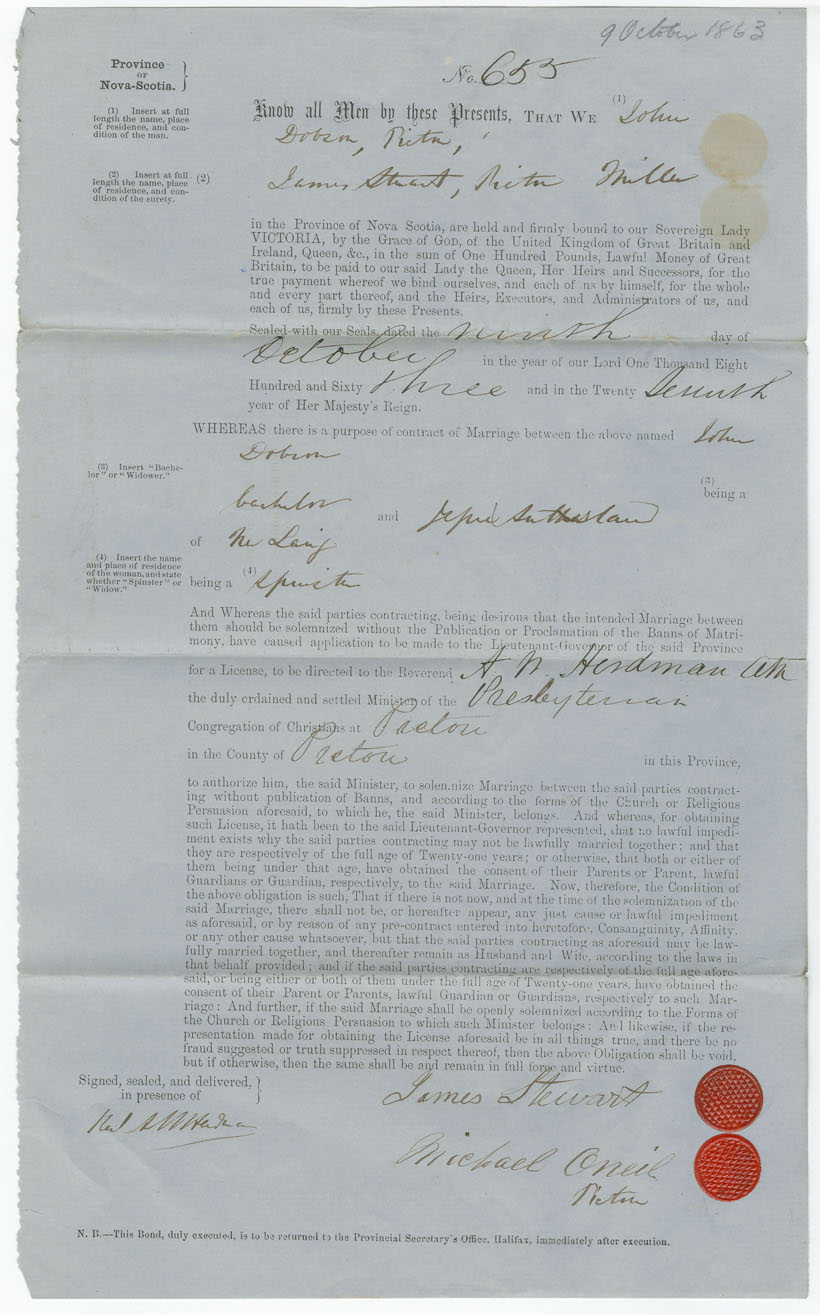 9 October 1863
Province
OF
Nova-Scotia.
No. 655
(1) Insert at full
length the name, place
of residence, and con-
dition of the man.
Know all Men by these Presents, THAT WE (1) John
Dobson, Pictou,
(2) Insert at full
length the name, place
of residence, and con-
dition of the surety.
(2) James Stuart, Pictou Miller
in the Province of Nova Scotia, are held and firmly bound to our Sovereign Lady
VICTORIA, by the Grace of GOD, of the United Kingdom of Great Britain and
Ireland, Queen, &c., in the sum of One Hundred Pounds, Lawful Money of Great
Britain, to be paid to our said Lady the Queen, Her Heirs and Successors, for the
true payment whereof we bind ourselves, and each of us by himself, for the whole
and every part thereof, and the Heirs, Executors, and Administrators of us, and
each of us, firmly by these Presents.
Sealed with our Seals, dated the ninth day of
October in the year of our Lord One Thousand Eight
Hundred and Sixty three and in the Twenty Seventh
year of Her Majesty's Reign.
WHEREAS there is a purpose of contract of Marriage between the above named John
Dobson
(3) Insert "Bache-
lor" or "Widower."
(3)
being a
bachelor and Sutherland
of
(4) Insert the name
and place of residence
of the woman, and state
whether "Spinster" or
"Widow."
being a (4) Spinster
And Whereas the said parties contracting, being desirous that the intended Marriage between
them should be solemnized without the Publication or Proclamation of the Banns of Matri-
mony, have caused application to be made to the Lieutenant-Governor of the said Province
for a License, to be directed to the Reverend A W Herdman AM
the duly ordained and settled Minister of the Presbyterian
Congregation of Christians at Pictou
in the County of Pictou in this Province,
to authorize him, the said Minister, to solemnize Marriage between the said parties contract-
ing without publication of Banns, and according to the forms of the Church or Religious
Persuasion aforesaid, to which he, the said Minister, belongs. And whereas, for obtaining
such License, it hath been to the said Lieutenant-Governor represented, that no lawful impedi-
ment exists why the said parties contracting may not be lawfully married together; and that
they are respectively of the full age of Twenty-one years; or otherwise, that both or either of
them being under that age, have obtained the consent of their Parents or Parent, lawful
Guardians or Guardian, respectively, to the said Marriage. Now, therefore, the Condition of
the above obligation is such, That if there is not now, and at the time of the solemnization of the
said Marriage, there shall not be, or hereafter appear, any just cause or lawful impediment
as aforesaid, or by reason of any pre-contract entered into heretofore, Consanguinity, Affinity,
or any other cause whatsoever, but that the said parties contracting as aforesaid may be law-
fully married together, and thereafter remain as Husband and Wife, according to the laws in
that behalf provided; and if the said parties contracting are respectively of the full age afore-
said, or being either or both of them under the full age of Twenty-one years, have obtained the
consent of their Parent or Parents, lawful Guardian or Guardians, respectively to such Mar-
riage: And further, if the said Marriage shall be openly solemnized according to the Forms of
the Church or Religious Persuasion to which such Minister belongs: And likewise, if the re-
presentation made for obtaining the License aforesaid be in all things true, and there be no
fraud suggested or truth suppressed in respect thereof, then the above Obligation shall be void,
but if otherwise, then the same shall be and remain in full force and virtue.
Signed, sealed, and delivered,
in presence of
James Stewart
Rev A W Herdman
Michael Oneil
Pictou
N. B.—This Bond, duly executed, is to be returned to the Provincial Secretary's Office, Halifax, immediately after execution.